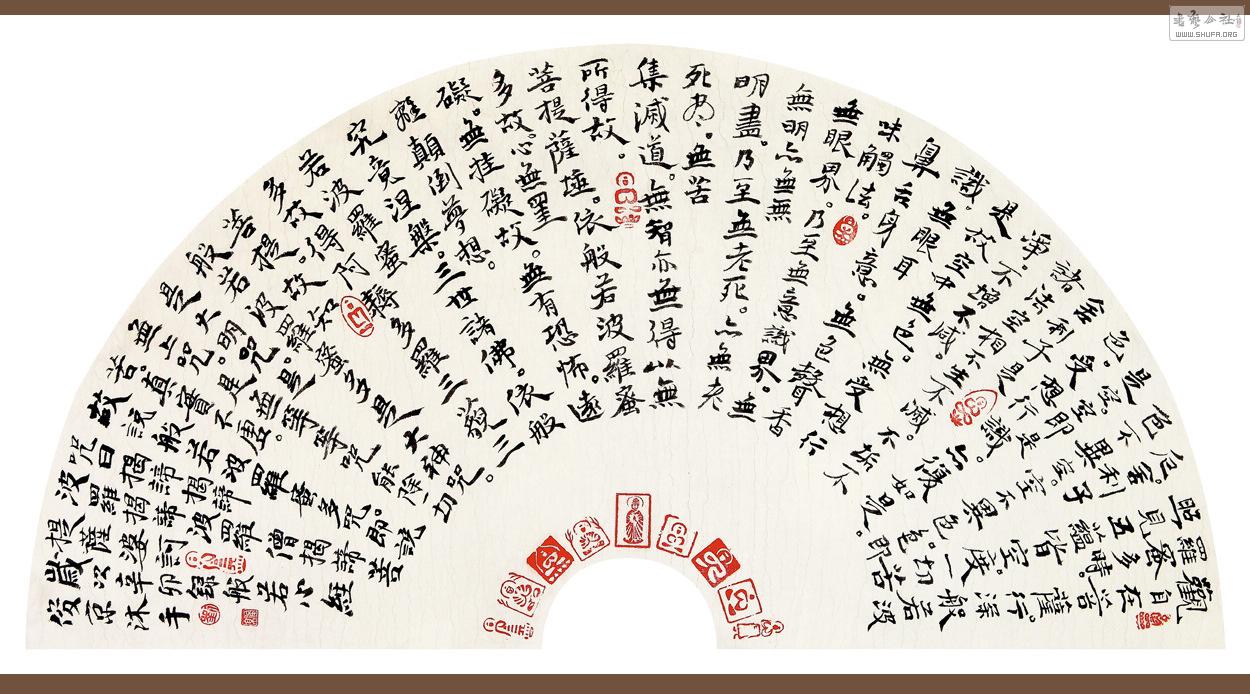 觀自在菩薩。行深般若波
羅蜜多時。
照見五蘊皆空。度一切苦
厄。舍利子
色不異空。空不異色。色即
是空。空即是
色。受想行識。亦復如是。
舍利子是
諸法空相。不生不滅。不垢不
淨。不增不減。
是故空中無色。無受想行
識。無眼耳
鼻舌身意。無色聲香
味觸法。
無眼界。乃至無意識界。無
無明亦無無
明盡。乃至無老死。亦無老
死盡。無苦
集滅道。無智亦無得以無
所得故。
菩提薩埵。依般若波羅蜜
多故。心無罣
礙。無挂礙故。無有恐怖。遠
離顛倒夢想。
究竟涅槃。三世諸佛。依般
若波羅蜜
多故。得阿耨多羅三藐三
菩提。故知
般若波羅蜜多是大神咒。
是大明咒。
是無上咒。是無等等咒能除一切
苦。真實不虛。
故說般若波羅蜜多咒。即說
咒曰揭諦揭諦
波羅揭諦波羅僧揭諦菩
提薩婆訶
般若心經
歲次辛卯
沐手
錄
書藝公社
WWW.SHUFA.ORG